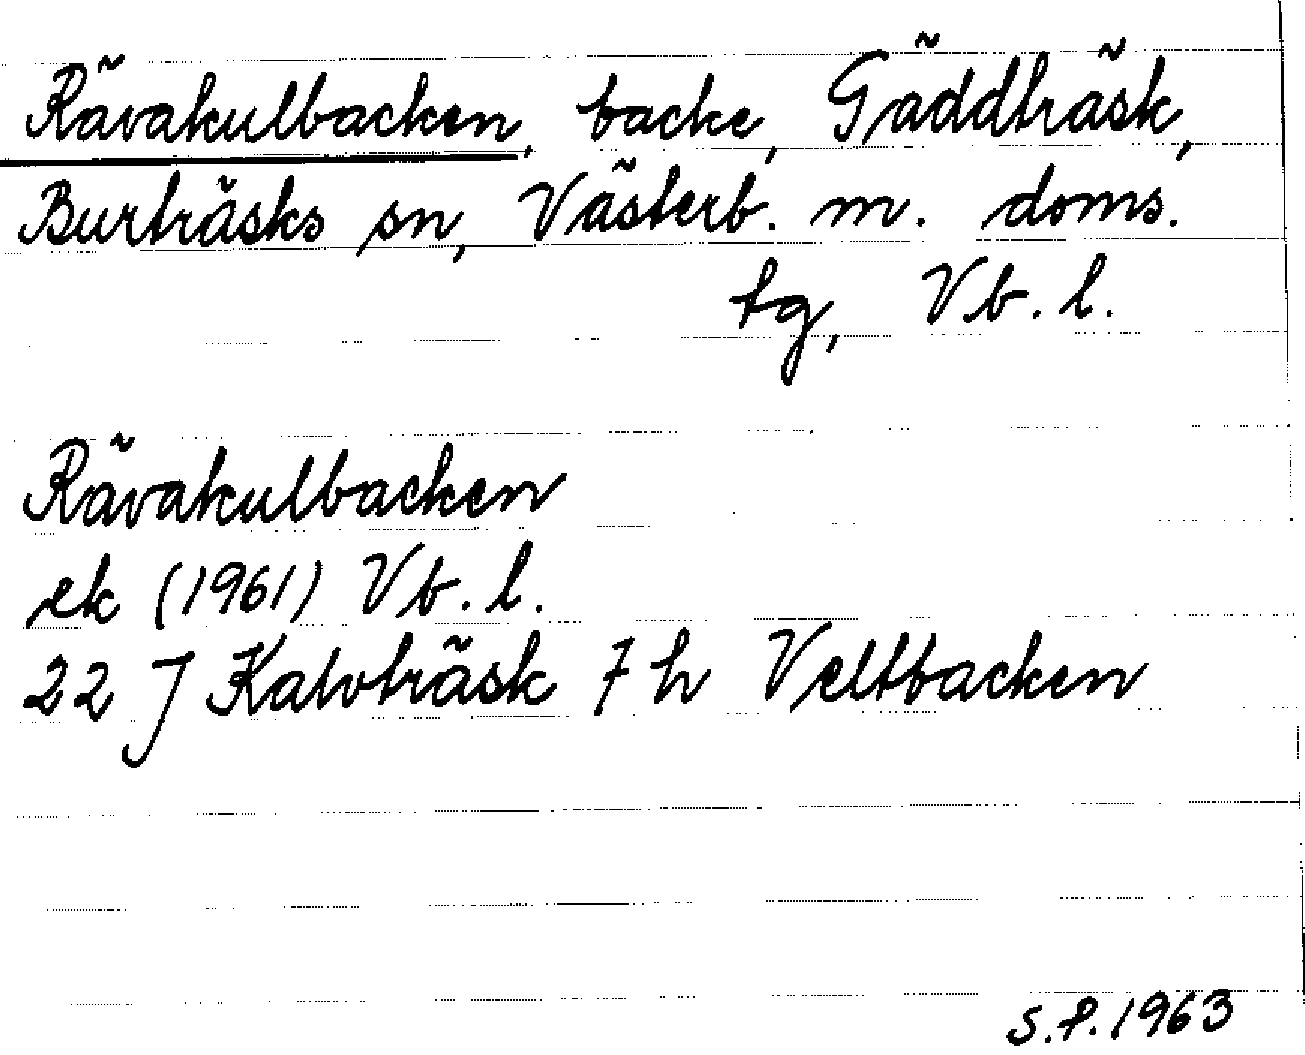 Rävakulbacken, backe, Gäddträsk,
Burträsks sn, Västerb. m. doms.
tg, Vb. l.
Rävakulbacken
ek (1961) Vb. l.
22 J Kalvträsk 7 h Veltbacken
S.P. 1963